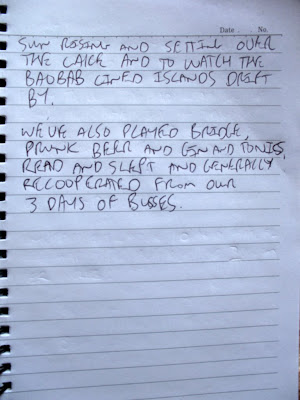 Date . No.
SUN RISING AND SETTING OVER
THE LAKE AND TO WATCH THE
BAOBAB LINED ISLANDS DRIFT
BY.
WE'VE ALSO PLAYED BRIDGE,
DRUNK BEER AND GIN AND TONICS,
READ AND SLEPT AND GENERALLY
RECOOPERATED FROM OUR
3 DAYS OF BUSSES.